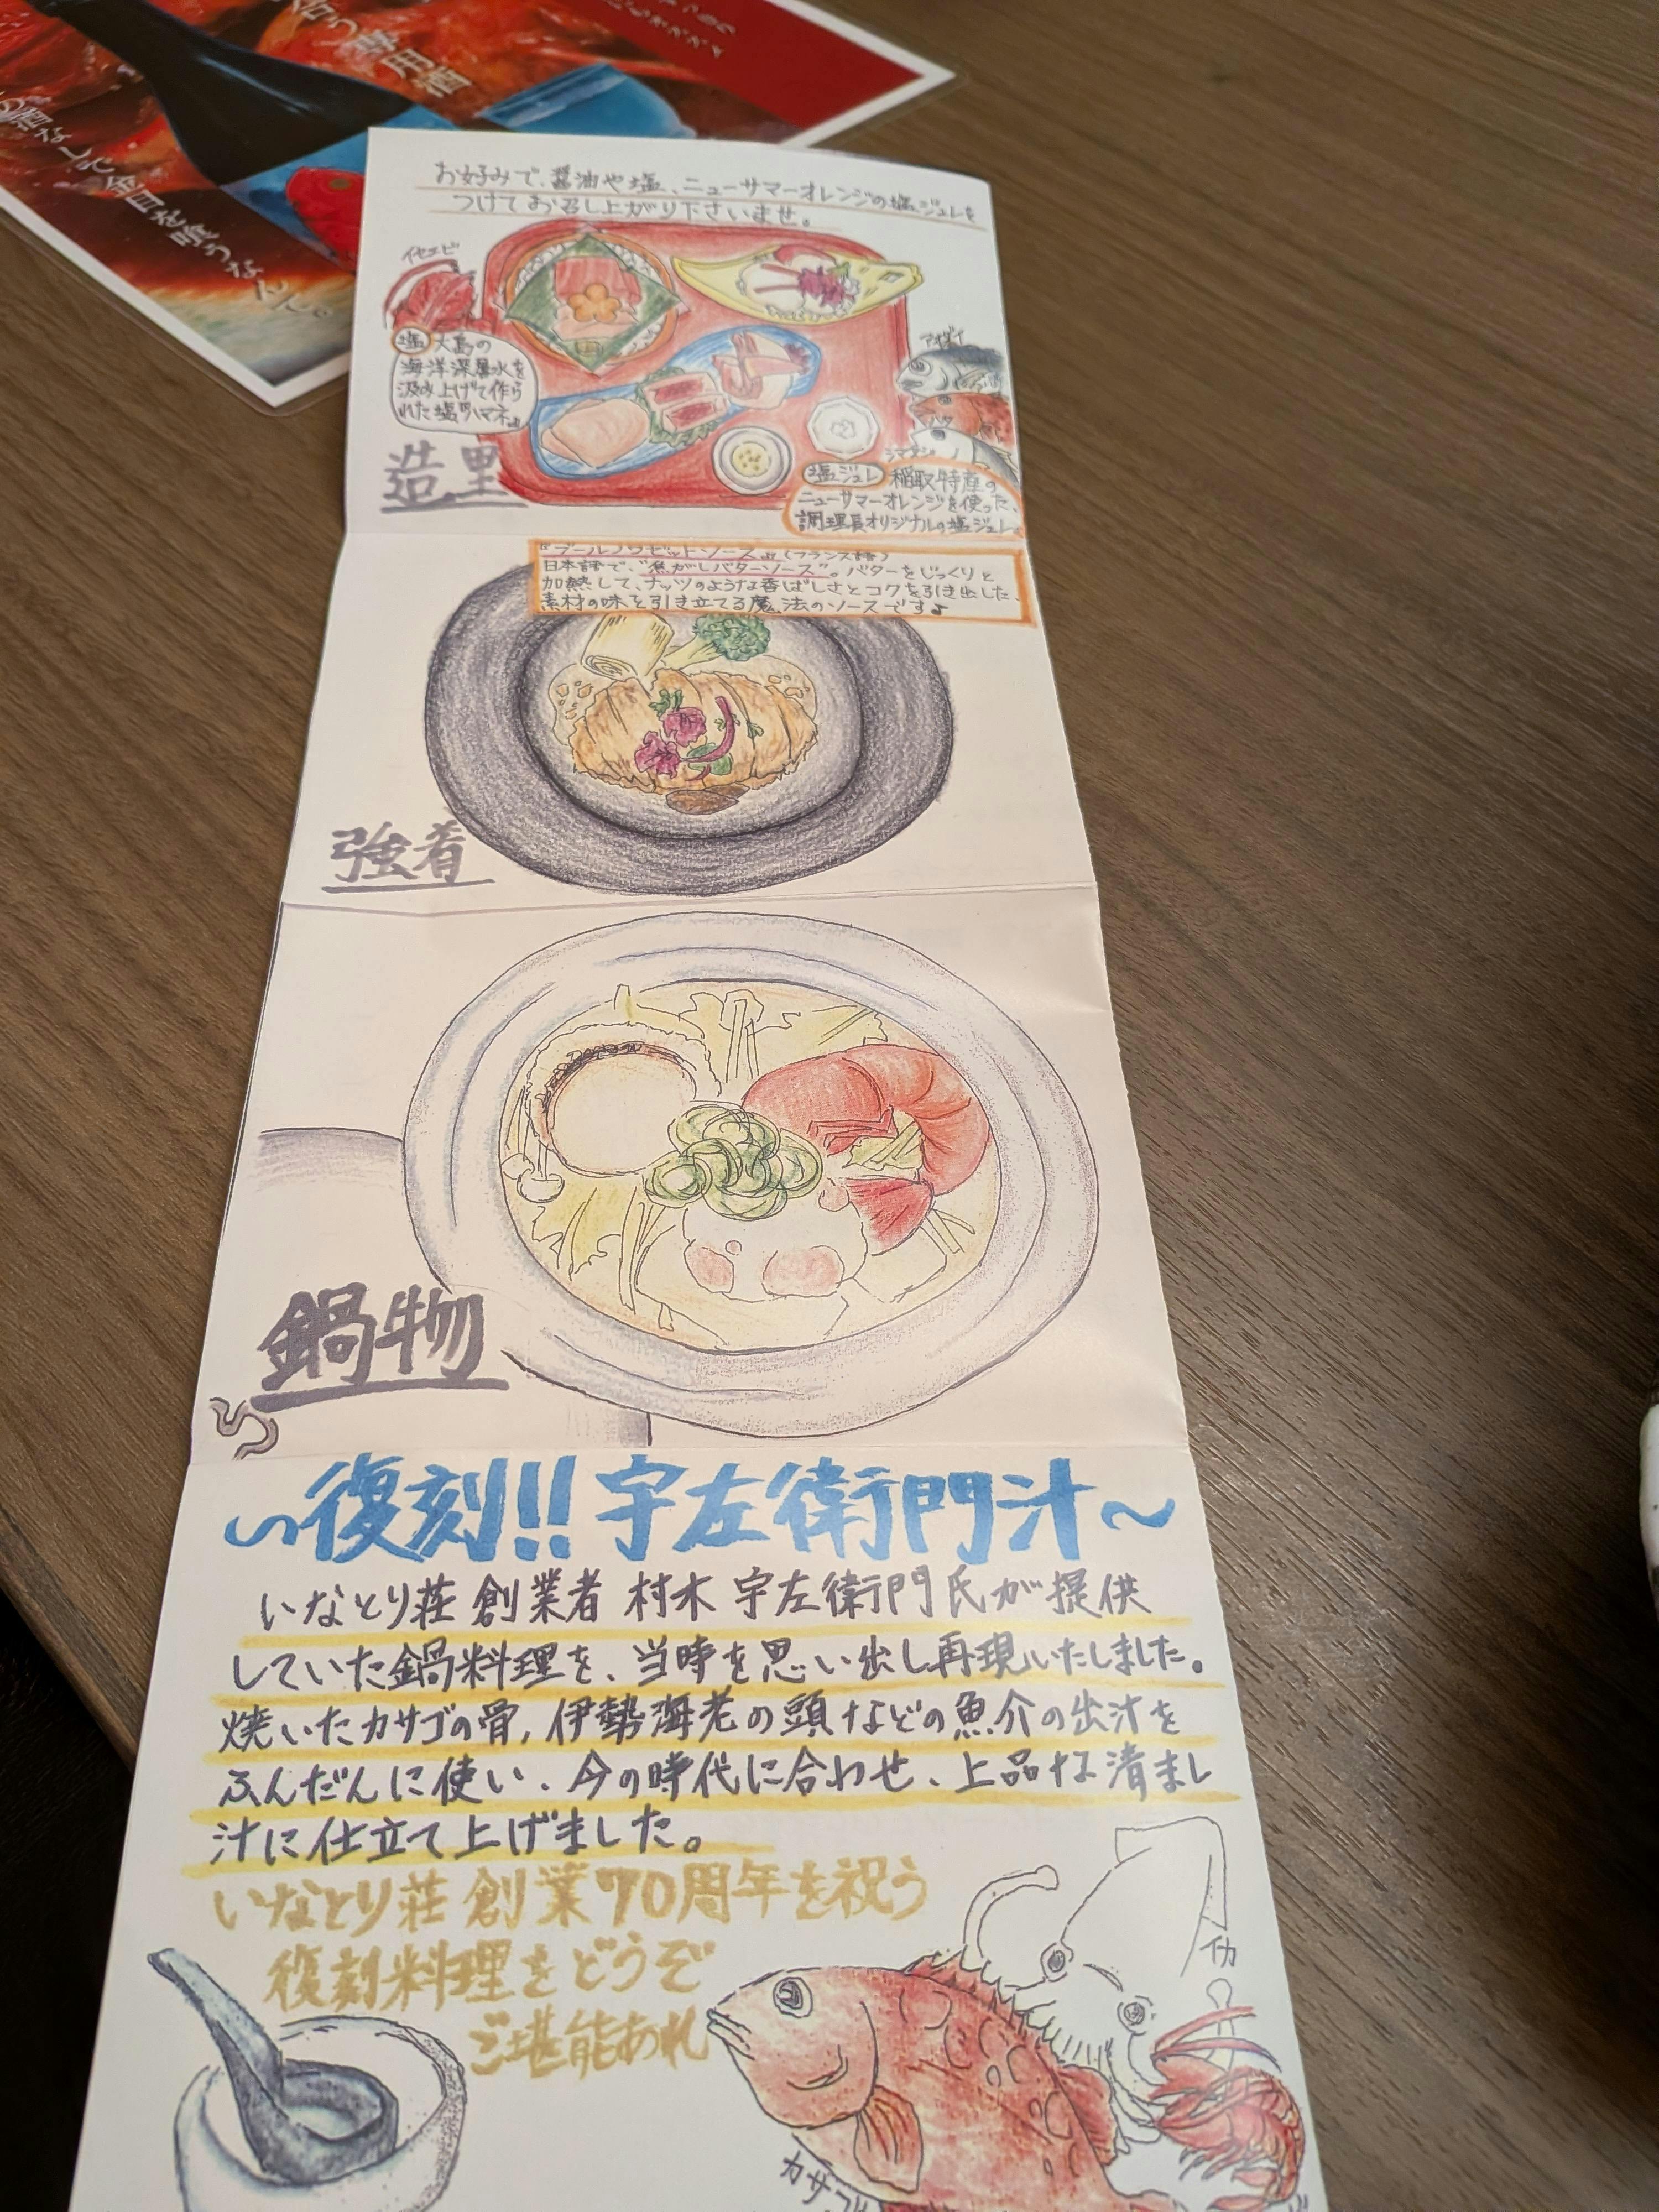 合う専用酒
酒なしで金目を喰うなんて。
お好みで、醤油や塩、ニューサマーオレンジの塩ジュレを
つけてお召し上がり下さいませ。
イセエビ
塩 大島の
海洋深層水を
汲み上げて作ら
れた塩『ハマネ』
アオダイ
ハタ
シマアジ
造里
塩ジュレ 稲取特産の
ニューサマーオレンジを使った、
調理長オリジナルの塩ジュレ。
『ブールノワゼットソース』(フランス語)
日本語で、"焦がしバターソース"。バターをじっくりと
加熱して、ナッツのような香ばしさとコクを引き出した、
素材の味を引き立てる魔法のソースです♪
強肴
鍋物
〜復刻!!宇左衛門汁〜
いなとり荘 創業者 村木 宇左衛門氏が提供
していた鍋料理を、当時を思い出し再現いたしました。
焼いたカサゴの骨、伊勢海老の頭などの魚介の出汁を
ふんだんに使い、今の時代に合わせ、上品な清まし
汁に仕立て上げました。
いなとり荘 創業70周年を祝う
復刻料理をどうぞ
ご堪能あれ
イカ
カサゴ